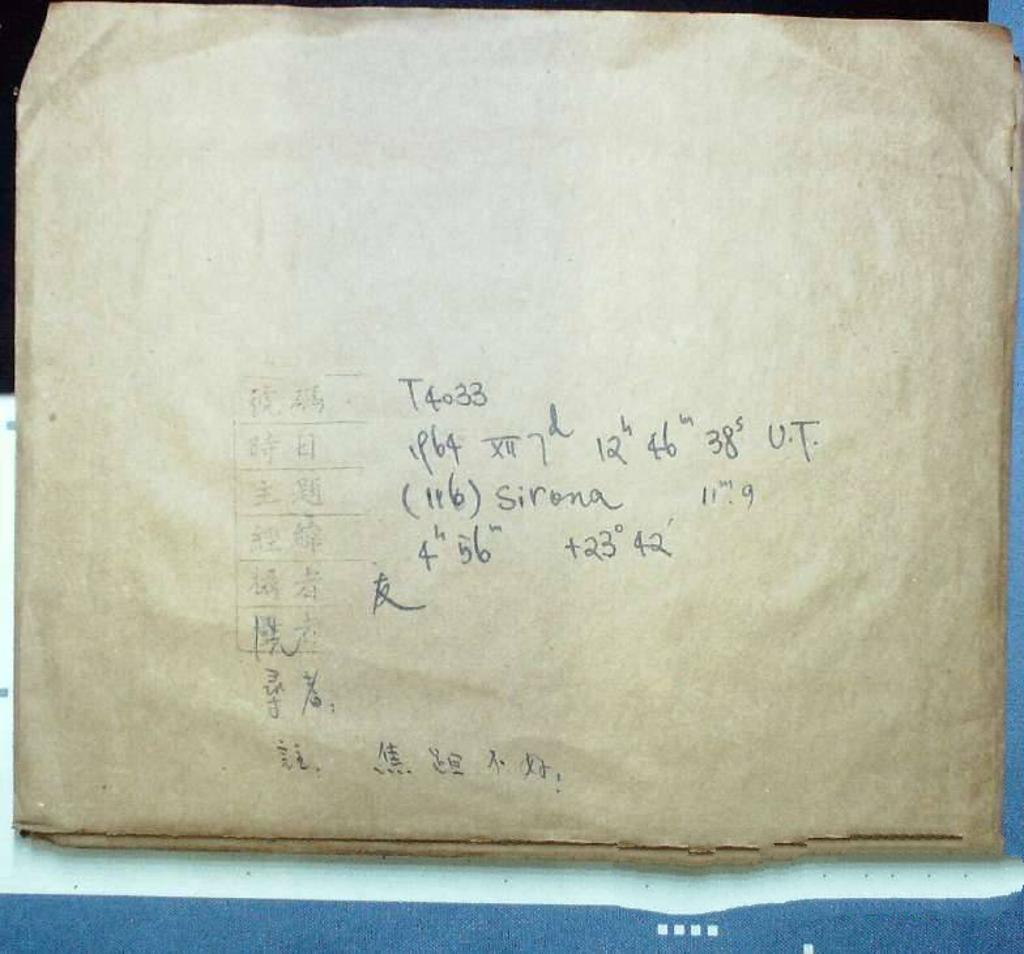 號碼 T4033
時日 1964 XII 7d 12h 46m 38s U.T.
主題 (116) Sirona 11m.9
經緯 4h 56m +23° 42'
攝者 友
者
尋者:
註. 焦距不好.